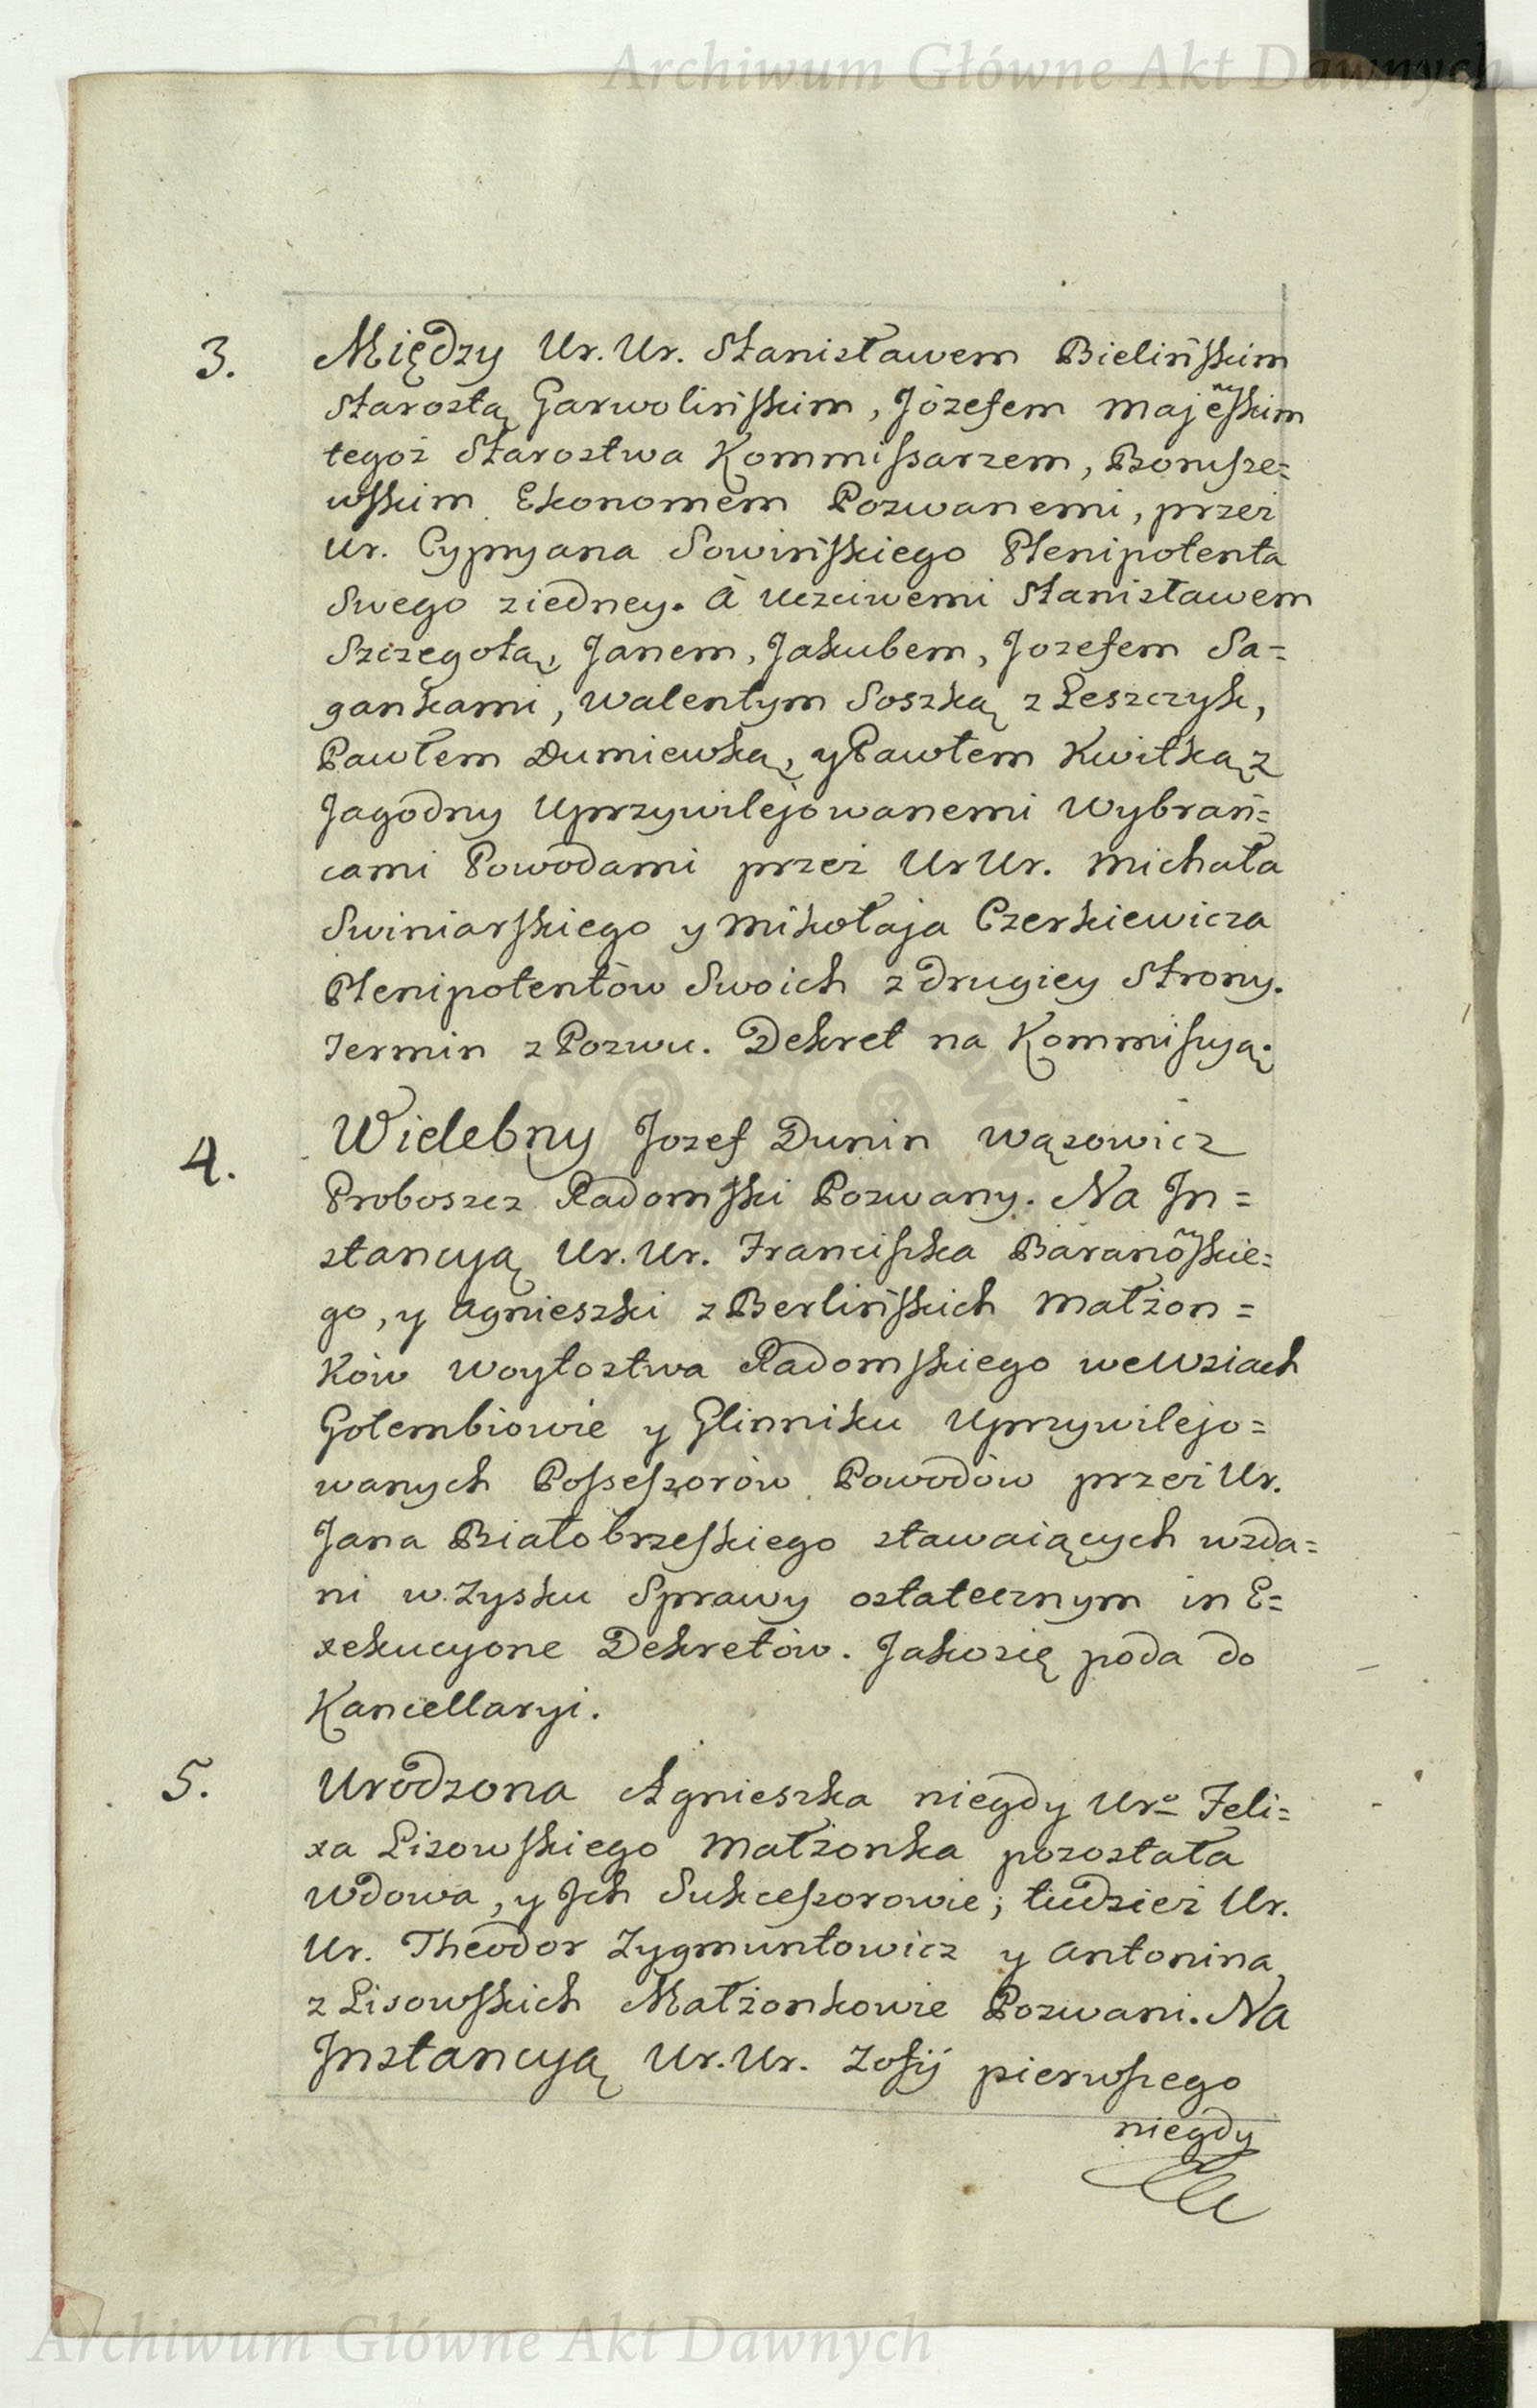 Archiwum Główne Akt Dawnych
3. Między Ur. Ur. Stanisławem Bielińskim
Starostą Garwolińskim, Józefem Majewskim
tegoż Starostwa Kommissarzem, Borusze=
wskim Ekonomem Pozwanemi, przez
Ur. Cypryana Sowińskiego Plenipotenta
Swego ziedney. A Uczciwemi Stanisławem
Szczegołą, Janem, Jakubem, Jozefem Sa=
gankami, Walentym Soszką z Leszczyk,
Pawłem Dumiewką, y Pawłem Kwitką z
Jagodny Uprzywilejowanemi Wybrań=
cami Powodami przez Ur Ur. Michała
Swiniarskiego y Mikołaja Czerkiewicza
Plenipotentów Swoich z drugiey Strony.
Termin z Pozwu. Dekret na Kommissyą.
4. Wielebny Jozef Dunin Wązowicz
Proboszcz Radomski Pozwany. Na In=
stancyą Ur. Ur. Franciszka Baranowskie=
go, y Agnieszki z Berlińskich Małżon=
ków Woytostwa Radomskiego we Wsiach
Gołembiowie y Glinniku Uprzywilejo=
wanych Possessorów Powodów przez Ur.
Jana Białobrzeskiego stawaiących wzda=
ni w Zysku Sprawy ostatecznym in E=
xekucyone Dekretów. Jako się poda do
Kancellaryi.
5. Urodzona Agnieszka niegdy Uro Feli=
xa Lisowskiego Małżonka pozostała
Wdowa, y Ich Sukcessorowie; tudzież Ur.
Ur. Theodor Zygmuntowicz y Antonina
z Lisowskich Małżonkowie Pozwani. Na
Instancyą Ur. Ur. Zofij pierwszego
niegdy
Archiwum Główne Akt Dawnych